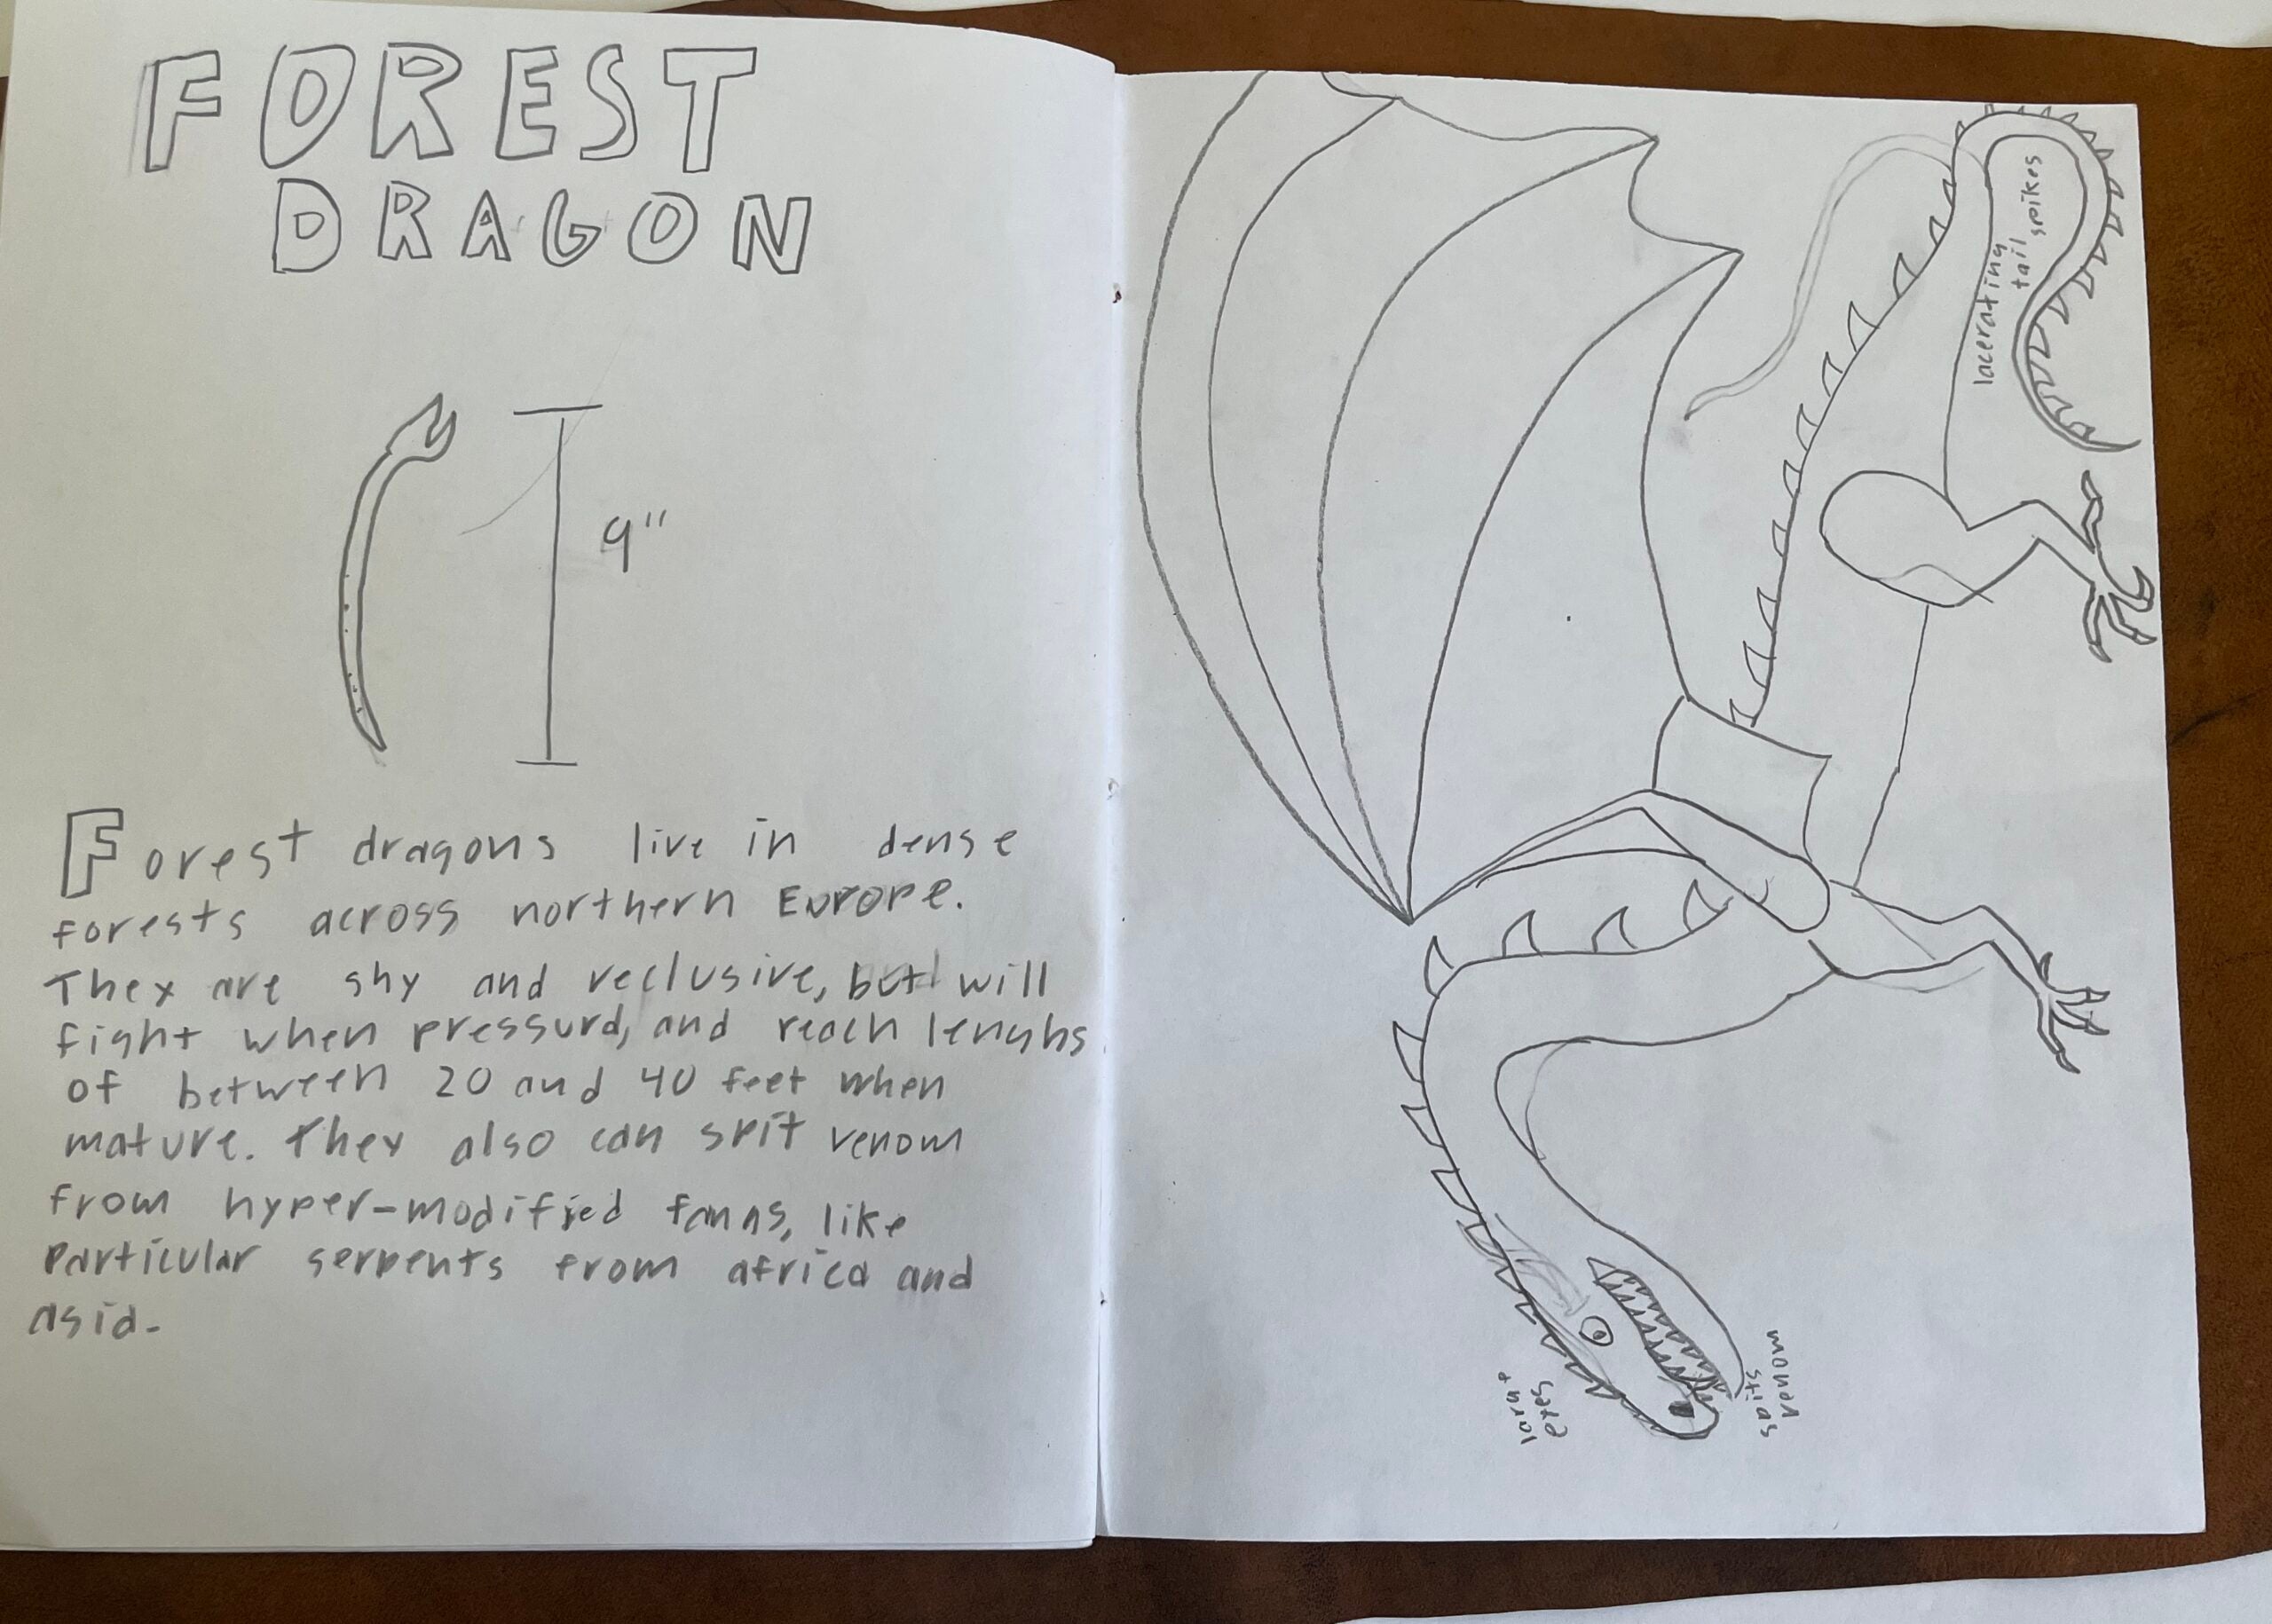 FOREST
DRAGON
9"
Forest dragons live in dense
forests across northern Europe.
They are shy and reclusive, but will
fight when pressurd, and reach lenghs
of between 20 and 40 feet when
mature. They also can spit venom
from hyper-modified fangs, like
particular serpents from africa and
asia.
lacerating
tail
spikes
large
eyes
spits
venom